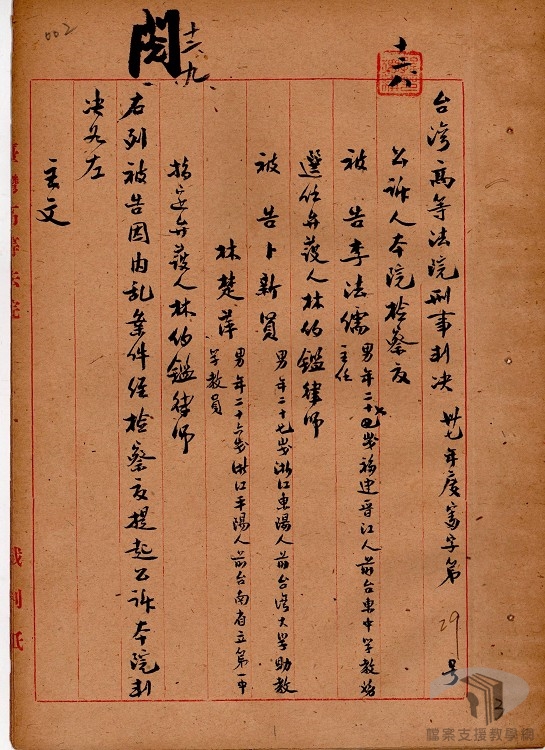 002
十二、八
閱
十二、九、
台灣高等法院刑事判決 卅七年度寓字第29号
公訴人本院檢察官
被告李法儒 男年二十七歲福建晋江人前台東中学教務主任
選任弁護人林伯鑑律师
被告卜新賢 男年二十七歲浙江東陽人前台湾大学助教
林楚萍 男年二十六歲浙江平陽人前台南省立第一中学教員
指定弁護人林伯鑑律师
右列被告因内乱案件经檢察官提起公訴本院判
决如左
主文
臺灣高等法院
裁判紙
3
檔案支援教學網